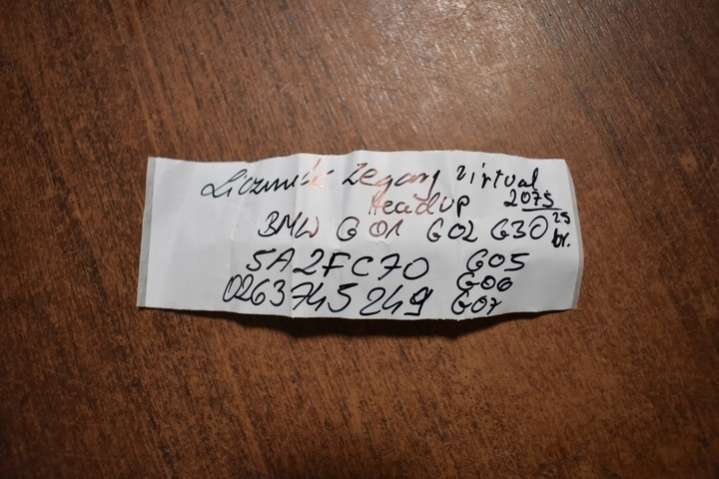 Licznik Zegary Virtual
HeadUp 2075
BMW G01 G02 G30 25 br.
5A2FC70 G05
G06
0263745249 G07